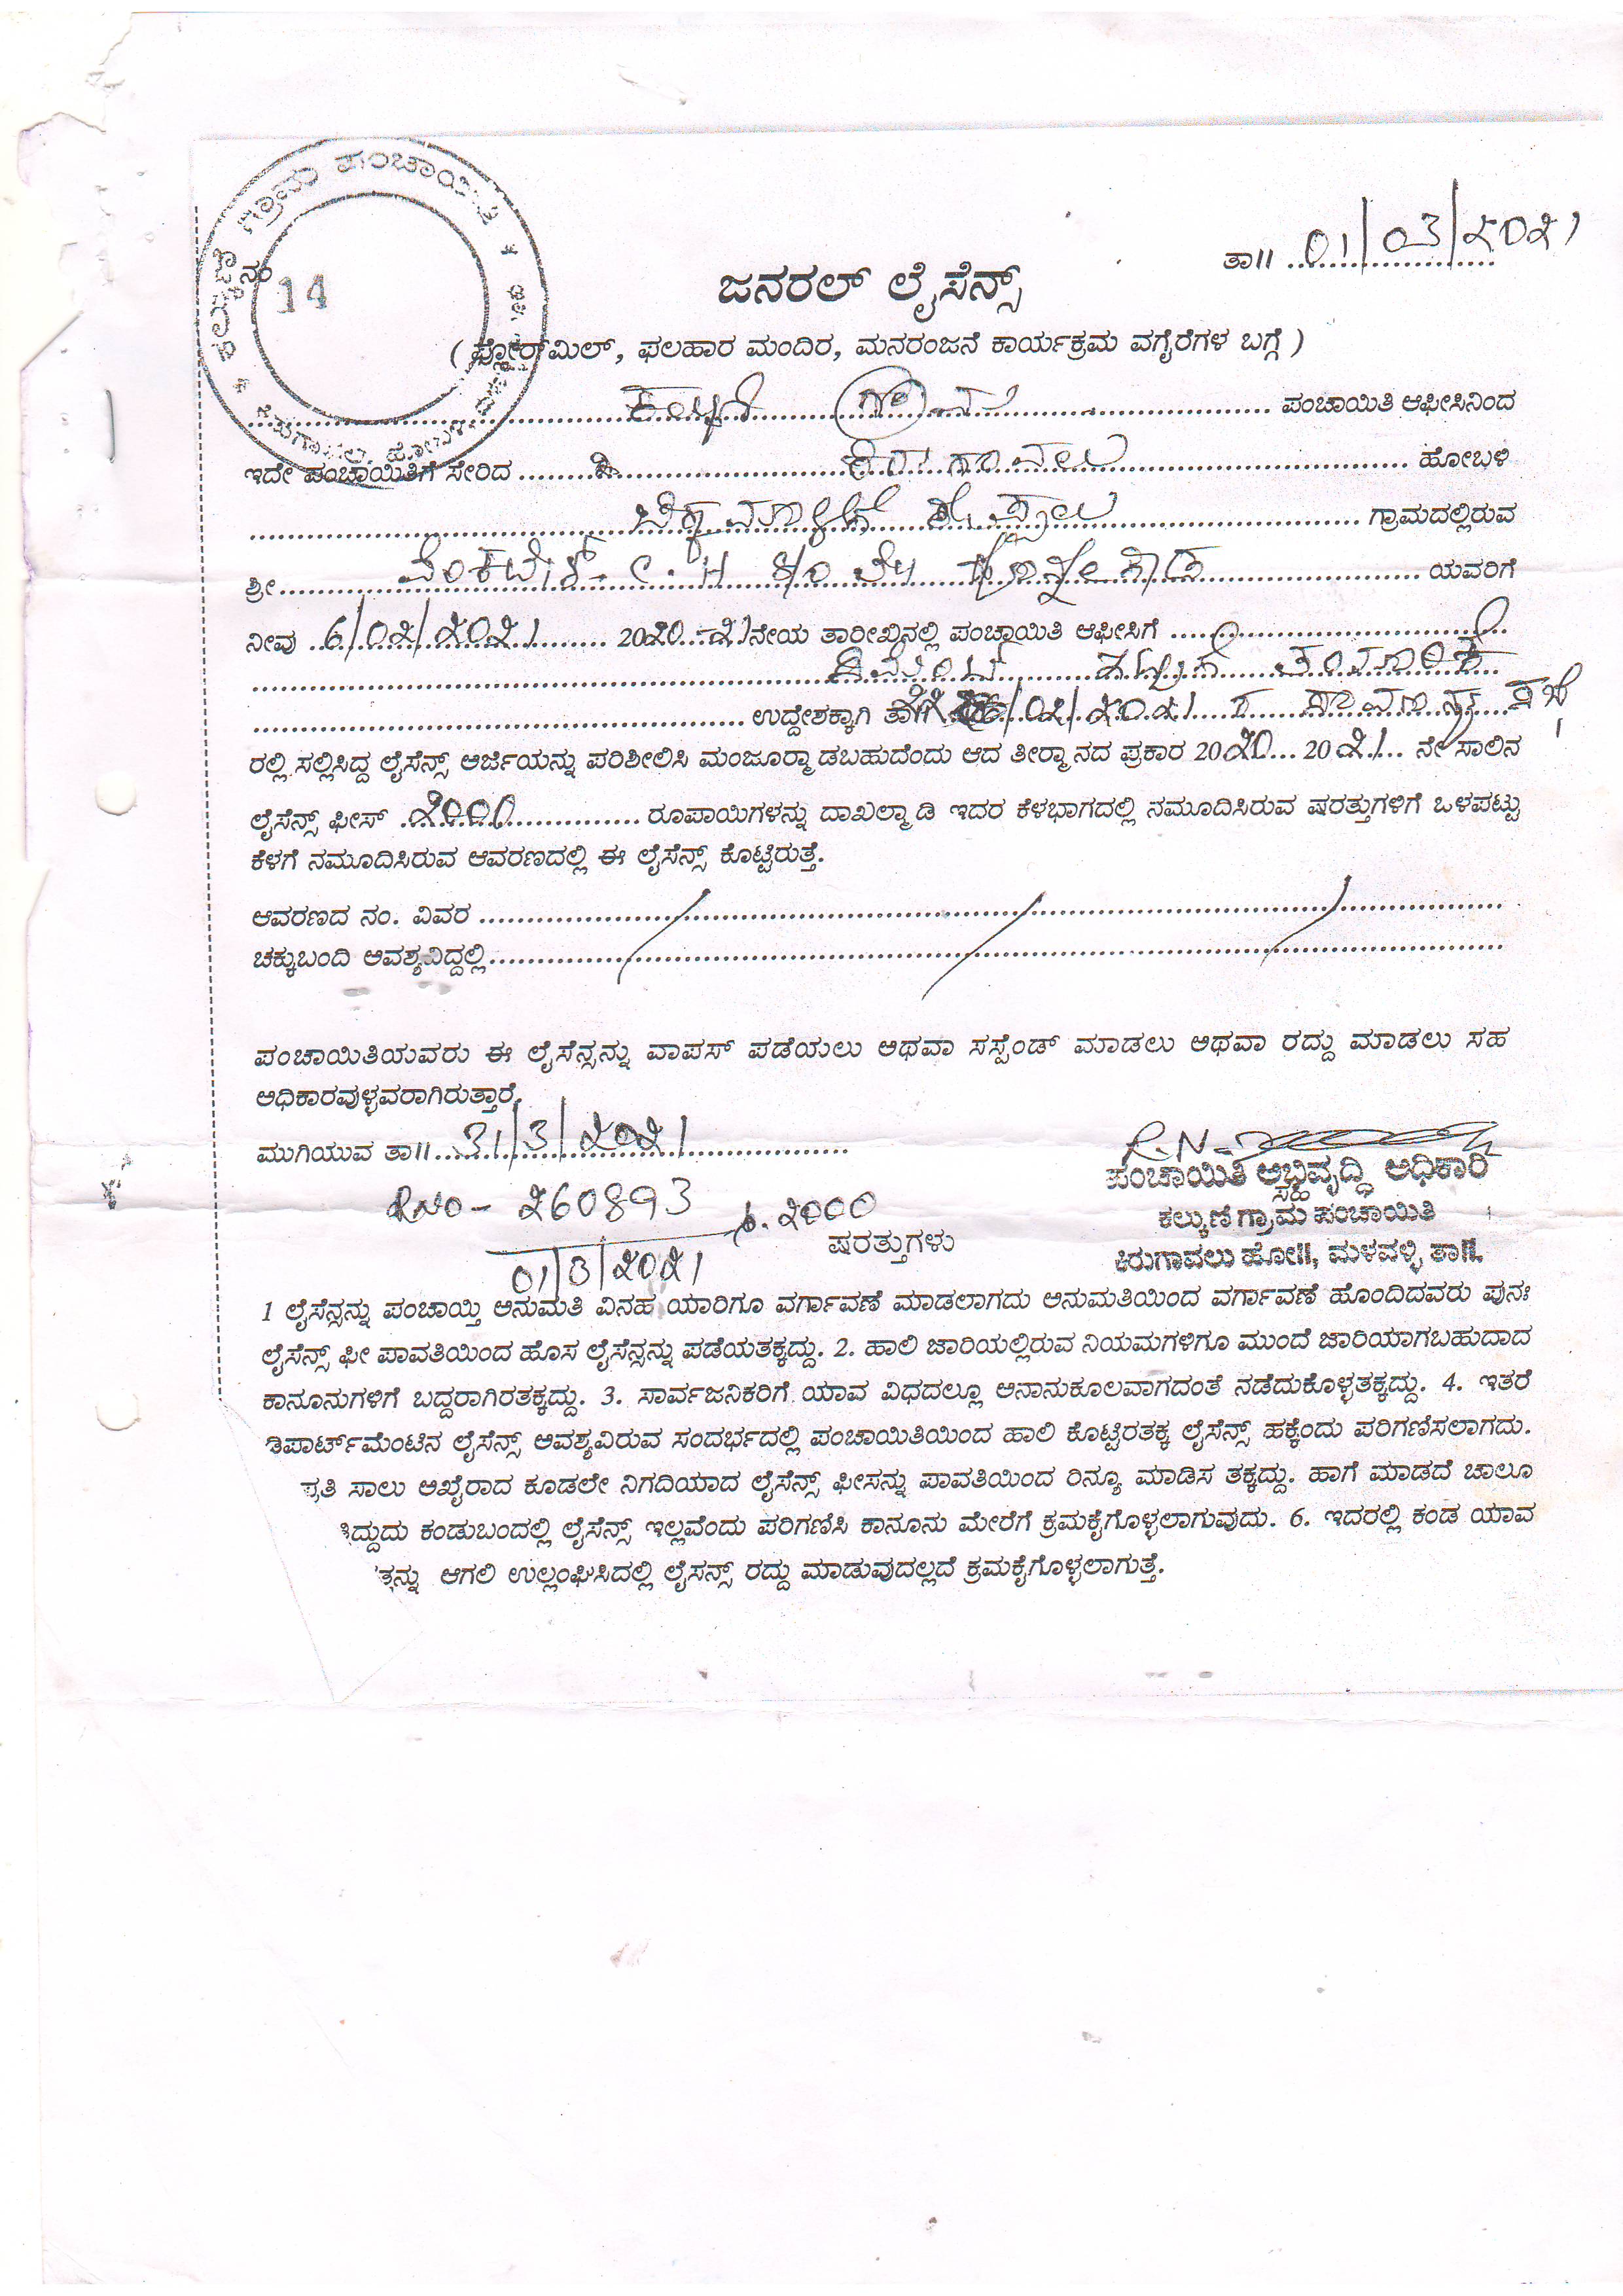 ಗ್ರಾಮ ಪಂಚಾಯಿತಿ
ನಂ 14
ತಾ॥ 01/03/2021
ಜನರಲ್ ಲೈಸೆನ್ಸ್
( ಫ್ಲೋರ್‌ಮಿಲ್, ಫಲಹಾರ ಮಂದಿರ, ಮನರಂಜನೆ ಕಾರ್ಯಕ್ರಮ ವಗೈರೆಗಳ ಬಗ್ಗೆ )
ಕಲ್ಕುಣಿ ಗ್ರಾಮ ಪಂಚಾಯಿತಿ ಆಫೀಸಿನಿಂದ
ಇದೇ ಪಂಚಾಯಿತಿಗೆ ಸೇರಿದ ಕಿರುಗಾವಲು ಹೋಬಳಿ
ಗ್ರಾಮದಲ್ಲಿರುವ
ಶ್ರೀ ವೆಂಕಟೇಶ್. C. H S/o ಲೇ॥ ಯವರಿಗೆ
ನೀವು 6/02/2021 2020-21ನೇಯ ತಾರೀಖಿನಲ್ಲಿ ಪಂಚಾಯಿತಿ ಆಫೀಸಿಗೆ
ಸಿಮೆಂಟ್ ತಯಾರಿಕೆ
ಉದ್ದೇಶಕ್ಕಾಗಿ ತಾ॥ /02/2021 ರ ಸಾಮಾನ್ಯ ಸಭೆ
ರಲ್ಲಿ ಸಲ್ಲಿಸಿದ್ದ ಲೈಸೆನ್ಸ್ ಅರ್ಜಿಯನ್ನು ಪರಿಶೀಲಿಸಿ ಮಂಜೂರ್ಮಾಡಬಹುದೆಂದು ಆದ ತೀರ್ಮಾನದ ಪ್ರಕಾರ 2020 2021 ನೇ ಸಾಲಿನ
ಲೈಸೆನ್ಸ್ ಫೀಸ್ 2000 ರೂಪಾಯಿಗಳನ್ನು ದಾಖಲ್ಮಾಡಿ ಇದರ ಕೆಳಭಾಗದಲ್ಲಿ ನಮೂದಿಸಿರುವ ಷರತ್ತುಗಳಿಗೆ ಒಳಪಟ್ಟು
ಕೆಳಗೆ ನಮೂದಿಸಿರುವ ಆವರಣದಲ್ಲಿ ಈ ಲೈಸೆನ್ಸ್ ಕೊಟ್ಟಿರುತ್ತೆ.
ಆವರಣದ ನಂ. ವಿವರ
ಚಕ್ಕುಬಂದಿ ಅವಶ್ಯವಿದ್ದಲ್ಲಿ
ಪಂಚಾಯಿತಿಯವರು ಈ ಲೈಸೆನ್ಸನ್ನು ವಾಪಸ್ ಪಡೆಯಲು ಅಥವಾ ಸಸ್ಪೆಂಡ್ ಮಾಡಲು ಅಥವಾ ರದ್ದು ಮಾಡಲು ಸಹ
ಅಧಿಕಾರವುಳ್ಳವರಾಗಿರುತ್ತಾರೆ.
ಮುಗಿಯುವ ತಾ॥ 31/3/2021
R.N
ಪಂಚಾಯಿತಿ ಅಭಿವೃದ್ಧಿ ಅಧಿಕಾರಿ
ಸಹಿ
RNo - 260893 2000
ಕಲ್ಕುಣಿ ಗ್ರಾಮ ಪಂಚಾಯಿತಿ
ಷರತ್ತುಗಳು
ಕಿರುಗಾವಲು ಹೋ॥, ಮಳವಳ್ಳಿ ತಾ॥.
01/3/2021
1 ಲೈಸೆನ್ಸನ್ನು ಪಂಚಾಯ್ತಿ ಅನುಮತಿ ವಿನಹ ಯಾರಿಗೂ ವರ್ಗಾವಣೆ ಮಾಡಲಾಗದು ಅನುಮತಿಯಿಂದ ವರ್ಗಾವಣೆ ಹೊಂದಿದವರು ಪುನಃ
ಲೈಸೆನ್ಸ್ ಫೀ ಪಾವತಿಯಿಂದ ಹೊಸ ಲೈಸೆನ್ಸನ್ನು ಪಡೆಯತಕ್ಕದ್ದು. 2. ಹಾಲಿ ಜಾರಿಯಲ್ಲಿರುವ ನಿಯಮಗಳಿಗೂ ಮುಂದೆ ಜಾರಿಯಾಗಬಹುದಾದ
ಕಾನೂನುಗಳಿಗೆ ಬದ್ದರಾಗಿರತಕ್ಕದ್ದು. 3. ಸಾರ್ವಜನಿಕರಿಗೆ ಯಾವ ವಿಧದಲ್ಲೂ ಅನಾನುಕೂಲವಾಗದಂತೆ ನಡೆದುಕೊಳ್ಳತಕ್ಕದ್ದು. 4. ಇತರೆ
ಡಿಪಾರ್ಟ್‌ಮೆಂಟಿನ ಲೈಸೆನ್ಸ್ ಅವಶ್ಯವಿರುವ ಸಂದರ್ಭದಲ್ಲಿ ಪಂಚಾಯಿತಿಯಿಂದ ಹಾಲಿ ಕೊಟ್ಟಿರತಕ್ಕ ಲೈಸೆನ್ಸ್ ಹಕ್ಕೆಂದು ಪರಿಗಣಿಸಲಾಗದು.
ಪ್ರತಿ ಸಾಲು ಆಖೈರಾದ ಕೂಡಲೇ ನಿಗದಿಯಾದ ಲೈಸೆನ್ಸ್ ಫೀಸನ್ನು ಪಾವತಿಯಿಂದ ರಿನ್ಯೂ ಮಾಡಿಸ ತಕ್ಕದ್ದು. ಹಾಗೆ ಮಾಡದೆ ಚಾಲೂ
ದ್ದುದು ಕಂಡುಬಂದಲ್ಲಿ ಲೈಸೆನ್ಸ್ ಇಲ್ಲವೆಂದು ಪರಿಗಣಿಸಿ ಕಾನೂನು ಮೇರೆಗೆ ಕ್ರಮಕೈಗೊಳ್ಳಲಾಗುವುದು. 6. ಇದರಲ್ಲಿ ಕಂಡ ಯಾವ
ಆಗಲಿ ಉಲ್ಲಂಘಿಸಿದಲ್ಲಿ ಲೈಸನ್ಸ್ ರದ್ದು ಮಾಡುವುದಲ್ಲದೆ ಕ್ರಮಕೈಗೊಳ್ಳಲಾಗುತ್ತೆ.